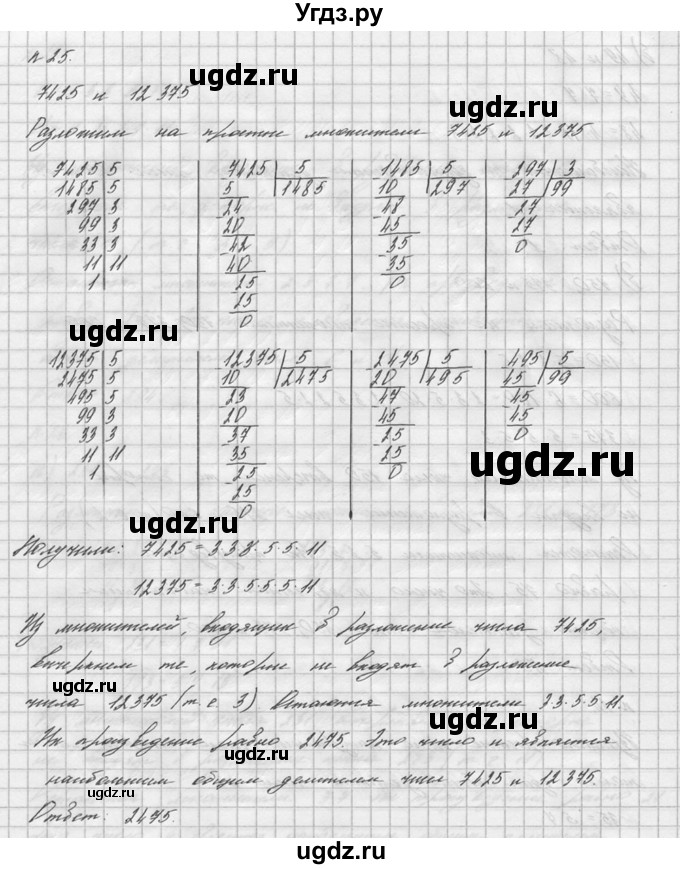 Угдз.ру
№ 25.
7425 и 12375
Разложим на простые множители 7425 и 12375
7425 | 5
1485 | 5
297 | 3
99 | 3
33 | 3
11 | 11
1
7425 | 5
5 | 1485
24
20
42
40
25
25
0
1485 | 5
10 | 297
48
45
35
35
0
297 | 3
27 | 99
27
27
0
12375 | 5
2475 | 5
495 | 5
99 | 3
33 | 3
11 | 11
1
12375 | 5
10 | 2475
23
20
37
35
25
25
0
2475 | 5
20 | 495
47
45
25
25
0
495 | 5
45 | 99
45
45
0
Получили: 7425 = 3·3·3·5·5·11
12375 = 3·3·5·5·5·11
Из множителей, входящих в разложение числа 7425,
вычеркнем те, которые не входят в разложение
числа 12375 (т.е. 3) Остаются множители 3·3·5·5·11.
Их произведение равно 2475. Это число и является
наибольшим общим делителем чисел 7425 и 12375.
Ответ: 2475.
ugdz.ru
ugdz.ru
ugdz.ru
ugdz.ru
ugdz.ru
ugdz.ru
ugdz.ru
ugdz.ru
ugdz.ru
ugdz.ru